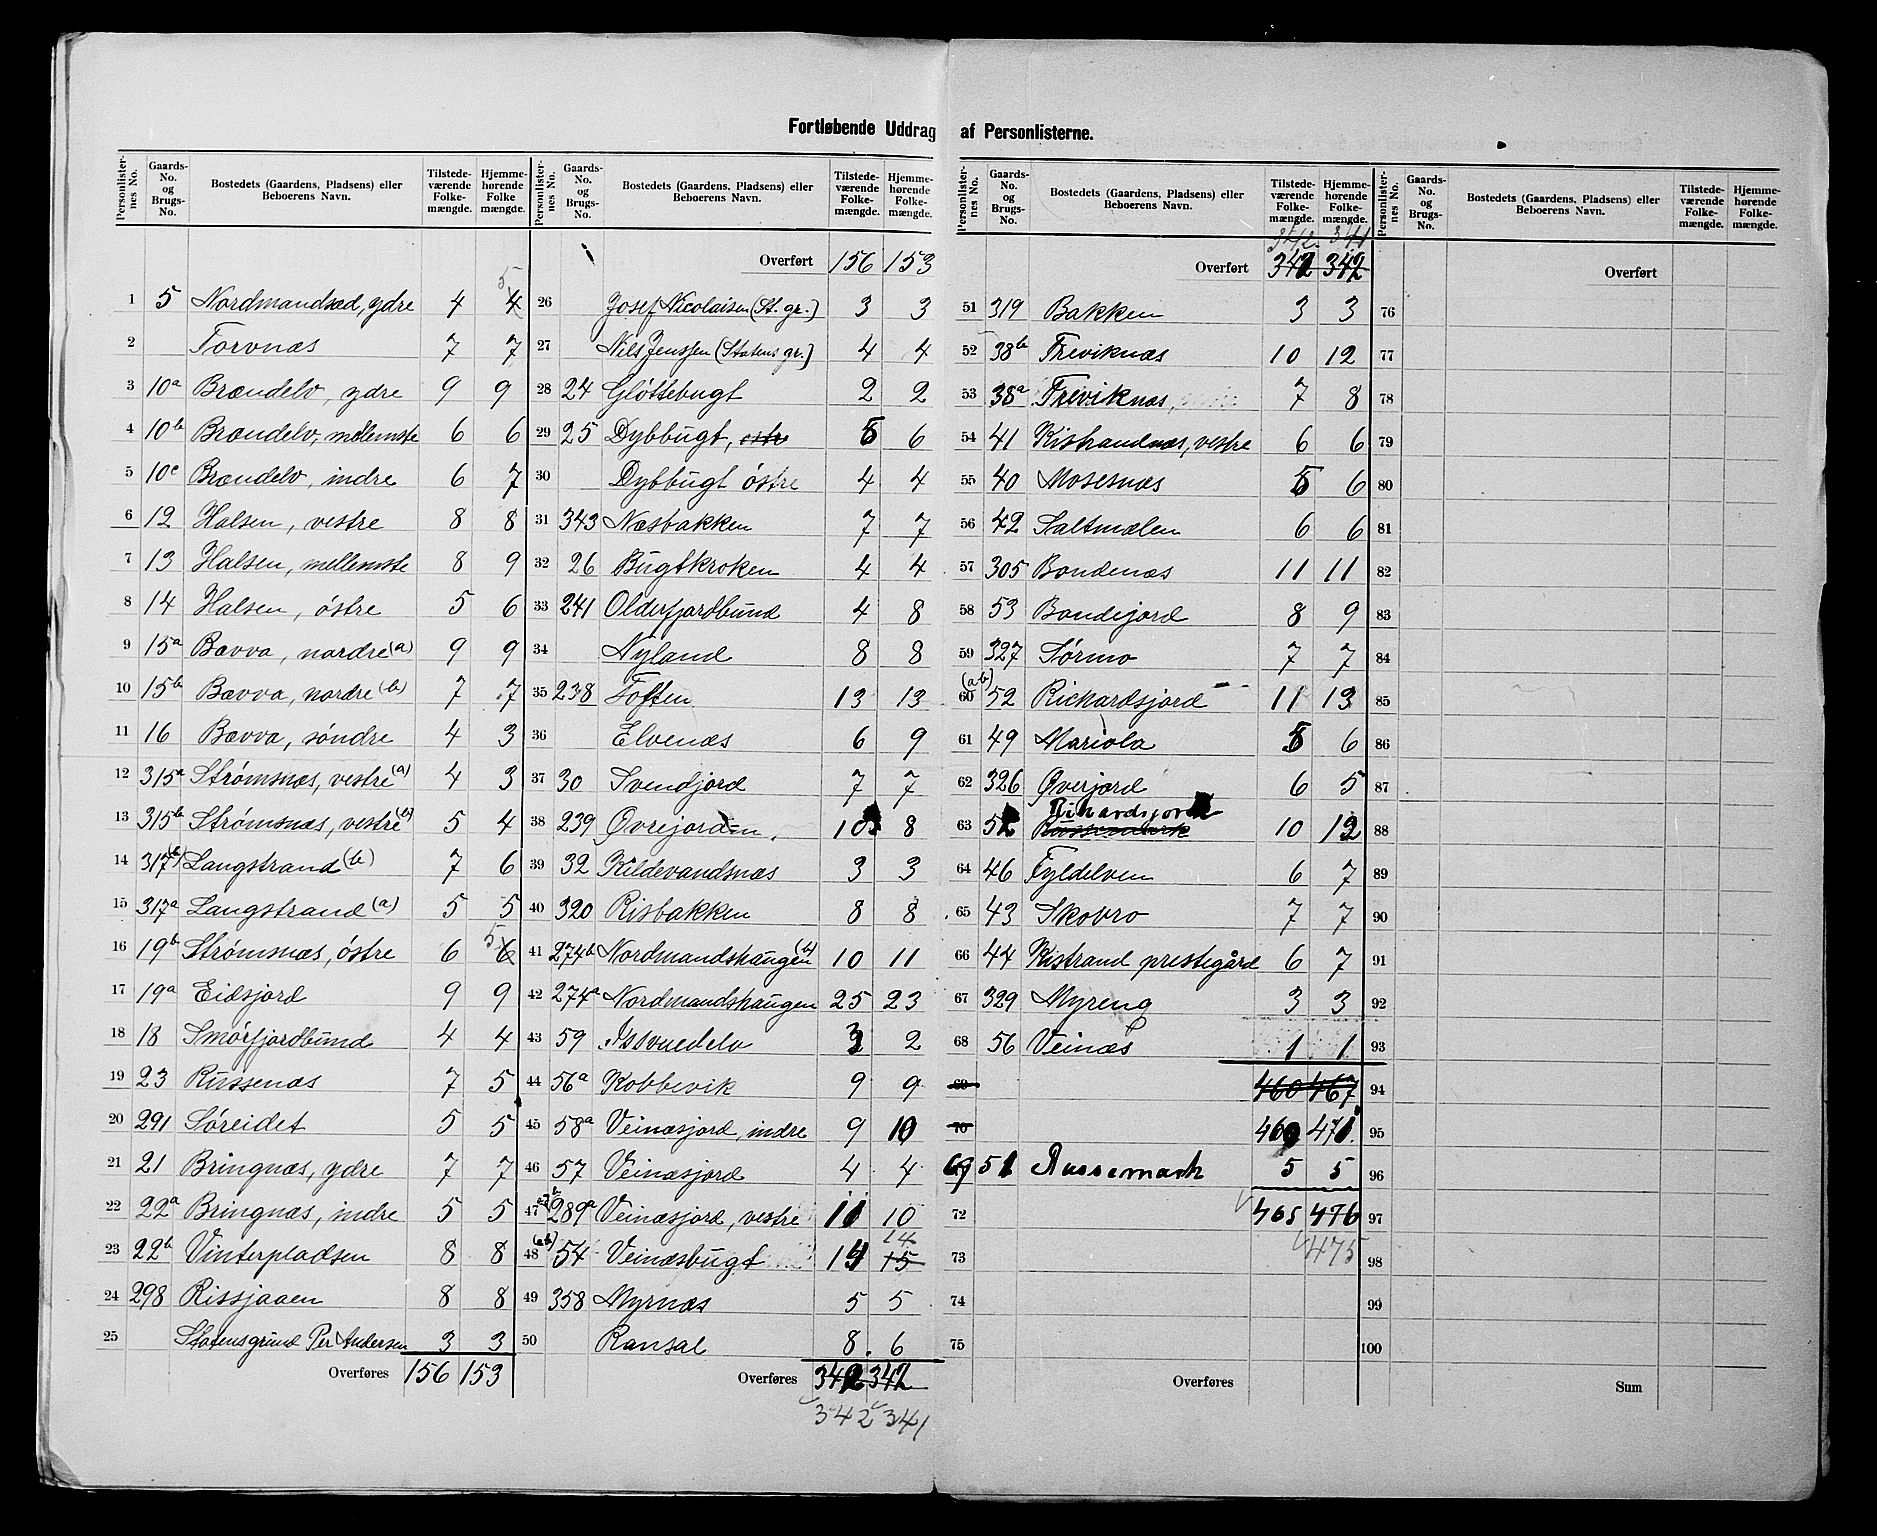 Fortløbende Uddrag af Personlisterne.
Personlister-nes No. Gaards-No. og Brugs-No. Bostedets (Gaardens, Pladsens) eller Beboerens Navn. Tilstede-værende Folke-mængde. Hjemme-hørende Folke mængde.
1 5 Nordmandsæd, ydre 4 4 5
2 Torvnæs 7 7
3 10a Brændelv, ydre 9 9
4 10b Brændelv, mellemste 6 6
5 10c Brændelv, indre 6 7
6 12 Halsen, vestre 8 8
7 13 Halsen, mellemste 8 9
8 14 Halsen, østre 5 6
9 15a Bævva, nordre (a) 9 9
10 15b Bævva, nordre (b) 7 7
11 16 Bævva, søndre 4 3
12 315a Strømsnæs, vestre (a) 4 3
13 315b Strømsnæs, vestre (b) 5 4
14 317(b) Langstrand (b) 7 6
15 317a Langstrand (a) 5 5
16 19b Strømsnæs, østre 6 6 5
17 19a Eidsjord 9 9
18 18 Smørfjordbund 4 4
19 23 Russenæs 7 5
20 291 Søreidet 5 5
21 21 Bringnæs, ydre 7 7
22 22a Bringnæs, indre 5 5
23 22b Vinterpladsen 8 8
24 298 Rissjaaen 8 8
25 Statensgrund Per Andersen 3 3
Overføres 156 153
Personlister-nes No. Gaards-No. og Brugs-No. Bostedets (Gaardens, Pladsens) eller Beboerens Navn. Tilstede-værende Folke-mængde. Hjemme-hørende Folke-mængde.
Overført 156 153
26 Josef Nicolaisen (St. gr.) 3 3
27 Nils Jenssen (Statens gr.) 4 4
28 24 Gløttebugt 2 2
29 25 Dybbugt, østre 5 6
30 Dybbugt østre 4 4
31 343 Næsbakken 7 7
32 26 Bugtkroken 4 4
33 241 Olderfjordbund 4 8
34 Nyland 8 8
35 238 Toften 13 13
36 Elvenæs 6 9
37 30 Svendjord 7 7
38 239 Øvrejorden. 10 8
39 32 Kildevandsnæs 3 3
40 320 Risbakken 8 8
41 274b Nordmandshaugen (b) 10 11
42 274a Nordmandshaugen 25 23
43 59 2
44 56a Kobbevik 9 9
45 58a Veinæsjord, indre 9 10
46 57 Veinæsjord 4 4
47 289a Veinæsjord, vestre 11 10
48 (ab) 54 Veinæsbugt 14 15 14
49 358 Myrnæs 5 5
50 Ransal 8 6
Overføres 342 342
342 341
Personlister-nes No. Gaards-No. og Brugs-No. Bostedets (Gaardens, Pladsens) eller Beboerens Navn. Tilstede-værende Folke-mængde. Hjemme-hørende Folke-mængde.
342 341
Overført 342 342
51 319 Bakken 3 3
52 38b Treviknæs 10 12
53 38a Treviknæs, 7 8
54 41 Kistrandnæs, vestre 6 6
55 40 Mosesnæs 5 6
56 42 Saltmælen 6 6
57 305 Bondenæs 11 11
58 53 Bondejord 8 9
59 327 Sørmo 7 7
60 (ab) 52 Richardsjord 11 13
61 49 Mariola 5 6
62 326 Øverjord 6 5
Richardsjord
63 52 Russemark 10 12
64 46 Fyldelven 6 7
65 43 Skobro 7 7
66 44 Kistrand prestegård 6 7
67 329 Myreng 3 3
68 56 Veinæs 1 1
69 460 467
70 460 471
69 51 Russemark 5 5
72 465 476
73 475
74
75
Overføres
Personlister-nes No. Gaards-No. og Brugs-No. Bostedets (Gaardens, Pladsens) eller Beboerens Navn. Tilstede-værende Folke-mængde. Hjemme-hørende Folke-mængde.
Overført
76
77
78
79
80
81
82
83
84
85
86
87
88
89
90
91
92
93
94
95
96
97
98
99
100
Sum